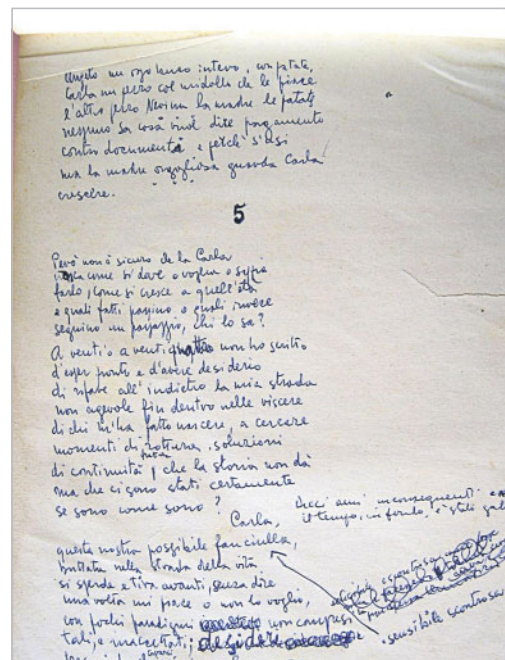 intero, con patate,
Carla un pezzo col midollo che le piace
l'altro pezzo Nerina la madre le patate
nessuno sa cosa vuol dire pagamento
contro documenti e perché s'usi
ma la madre orgogliosa guarda Carla
crescere.
5
Però non è sicuro che la Carla
come si deve o voglia o sappia
farlo, come si cresce a quell'età
e quali fatti paghino o quali invece
seguino un passaggio, chi lo sa?
A venti o a ventiquattro non ho scritto
d'esser pronto e d'avere desiderio
di rifare all'indietro la mia strada
non agevole fin dentro nelle viscere
di chi m'ha fatto nascere, a cercare
momenti di rottura, soluzioni
di continuità, che la storia non dà
ma che ci sono stati certamente
se sono come sono?
Carla,
dieci anni inconseguenti
il tempo, in fondo, è stato
questa nostra possibile fanciulla,
buttata nella strada della vita
si sperde e tira avanti, senza dire
una volta mi piace o non lo voglio,
con pochi paradigmi non compresi,
tali, e inaccettati;
sensibile scontrosa